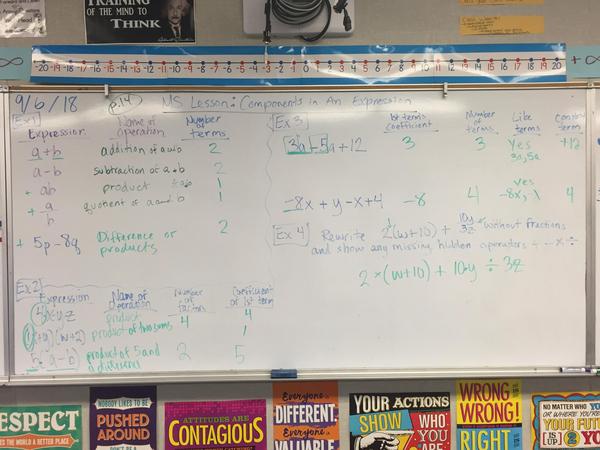 TRAINING
OF THE MIND TO
THINK
-20 -19 -18 -17 -16 -15 -14 -13 -12 -11 -10 -9 -8 -7 -6 -5 -4 -3 -2 -1 0 1 2 3 4 5 6 7 8 9 10 11 12 13 14 15 16 17 18 19 20
∞
+∞
9/6/18 p.14 MS Lesson: Components in An Expression
Ex 1
Expression Name of operation Number of terms
a+b addition of a and b 2
a-b subtraction of a and b 2
ab product 1
a/b quotient of a and b 1
5p-8q Difference of products 2
Ex 2
Expression Name of operation Number of factors Coefficient of 1st term
4xyz product 4 4
product of two sums 1
product of 5 and a difference 2 5
Ex 3
1st terms coefficient Number of terms Like terms
3a-5a+12 3 3 Yes 3a, 5a +12
-8x+y-x+4 -8 4 yes -8x, 4
Ex 4 Rewrite 2(w+10) + 10y/3z without fractions
and show any missing hidden operators + - × ÷
2×(w+10) + 10·y ÷ 3z
RESPECT
THE WORLD A BETTER PLACE
NOBODY LIKES TO BE
PUSHED
AROUND
ATTITUDES ARE
CONTAGIOUS
Everyone is
DIFFERENT.
Everyone is
VALUABLE
YOUR ACTIONS
SHOW WHO
YOU ARE
WRONG IS
WRONG!
RIGHT
NO MATTER WHO YOU
OR WHERE YOU'RE
YOUR FUTURE
IS UP 2 YOU